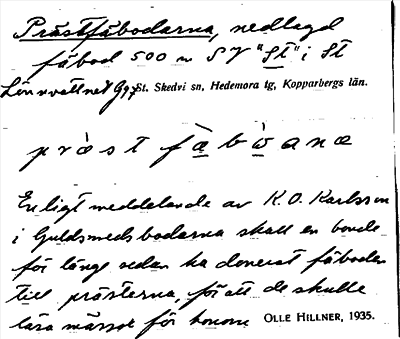 Prästfäbodarna, nedlagd
fäbod 500 m SV "St" i St
Lönnvattnet G97 St. Skedvi sn, Hedemora tg, Kopparbergs län.
pràst fàbòdanæ
Enligt meddelande av K.O. Karlsson
i Guldsmedsbodarna skall en bonde
för länge sedan ha donerat fäboden
till prästerna, för att de skulle
lära mässor för honom OLLE HILLNER, 1935.